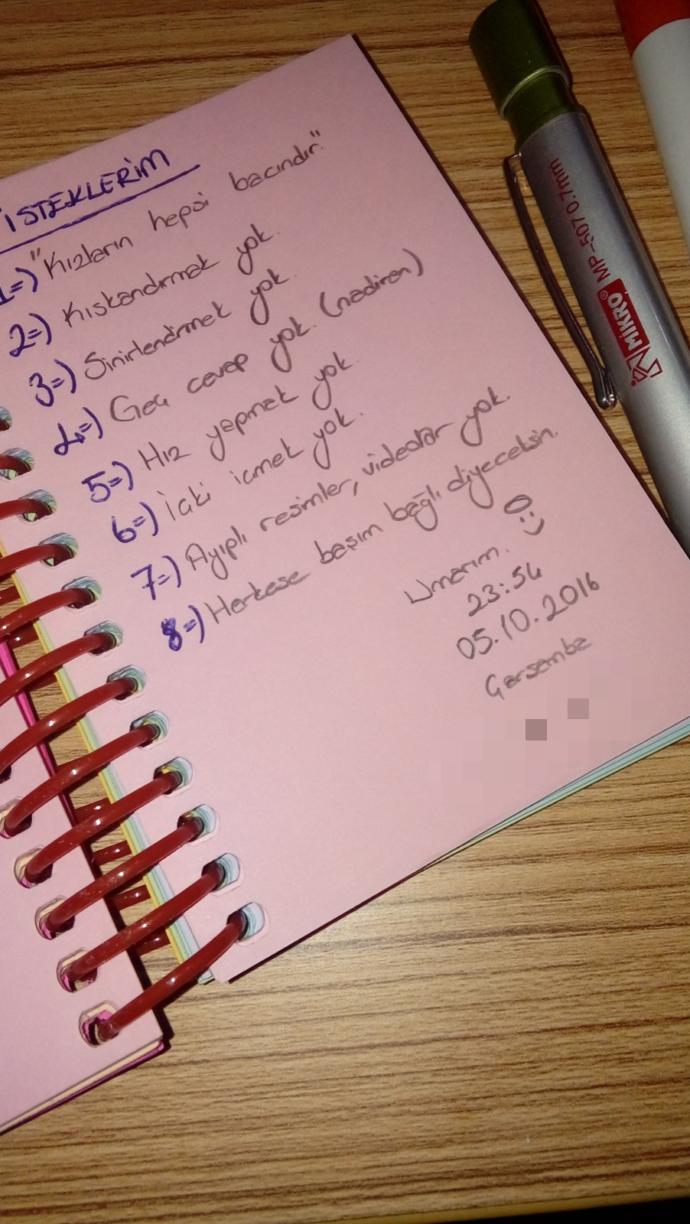 İSTEKLERİM
1=) "Kızların hepsi bacındır."
2=) Kıskandırmak yok.
3=) Sinirlendirmek yok.
4=) Geç cevap yok. (nadiren)
5=) Hız yapmak yok.
6=) İçki içmek yok.
7=) Ayıplı resimler, videolar yok.
8=) Herkese başım bağlı diyeceksin.
Umarım.
23:54
05.10.2016
Çarşamba
MİKRO® MP-507 0.7mm